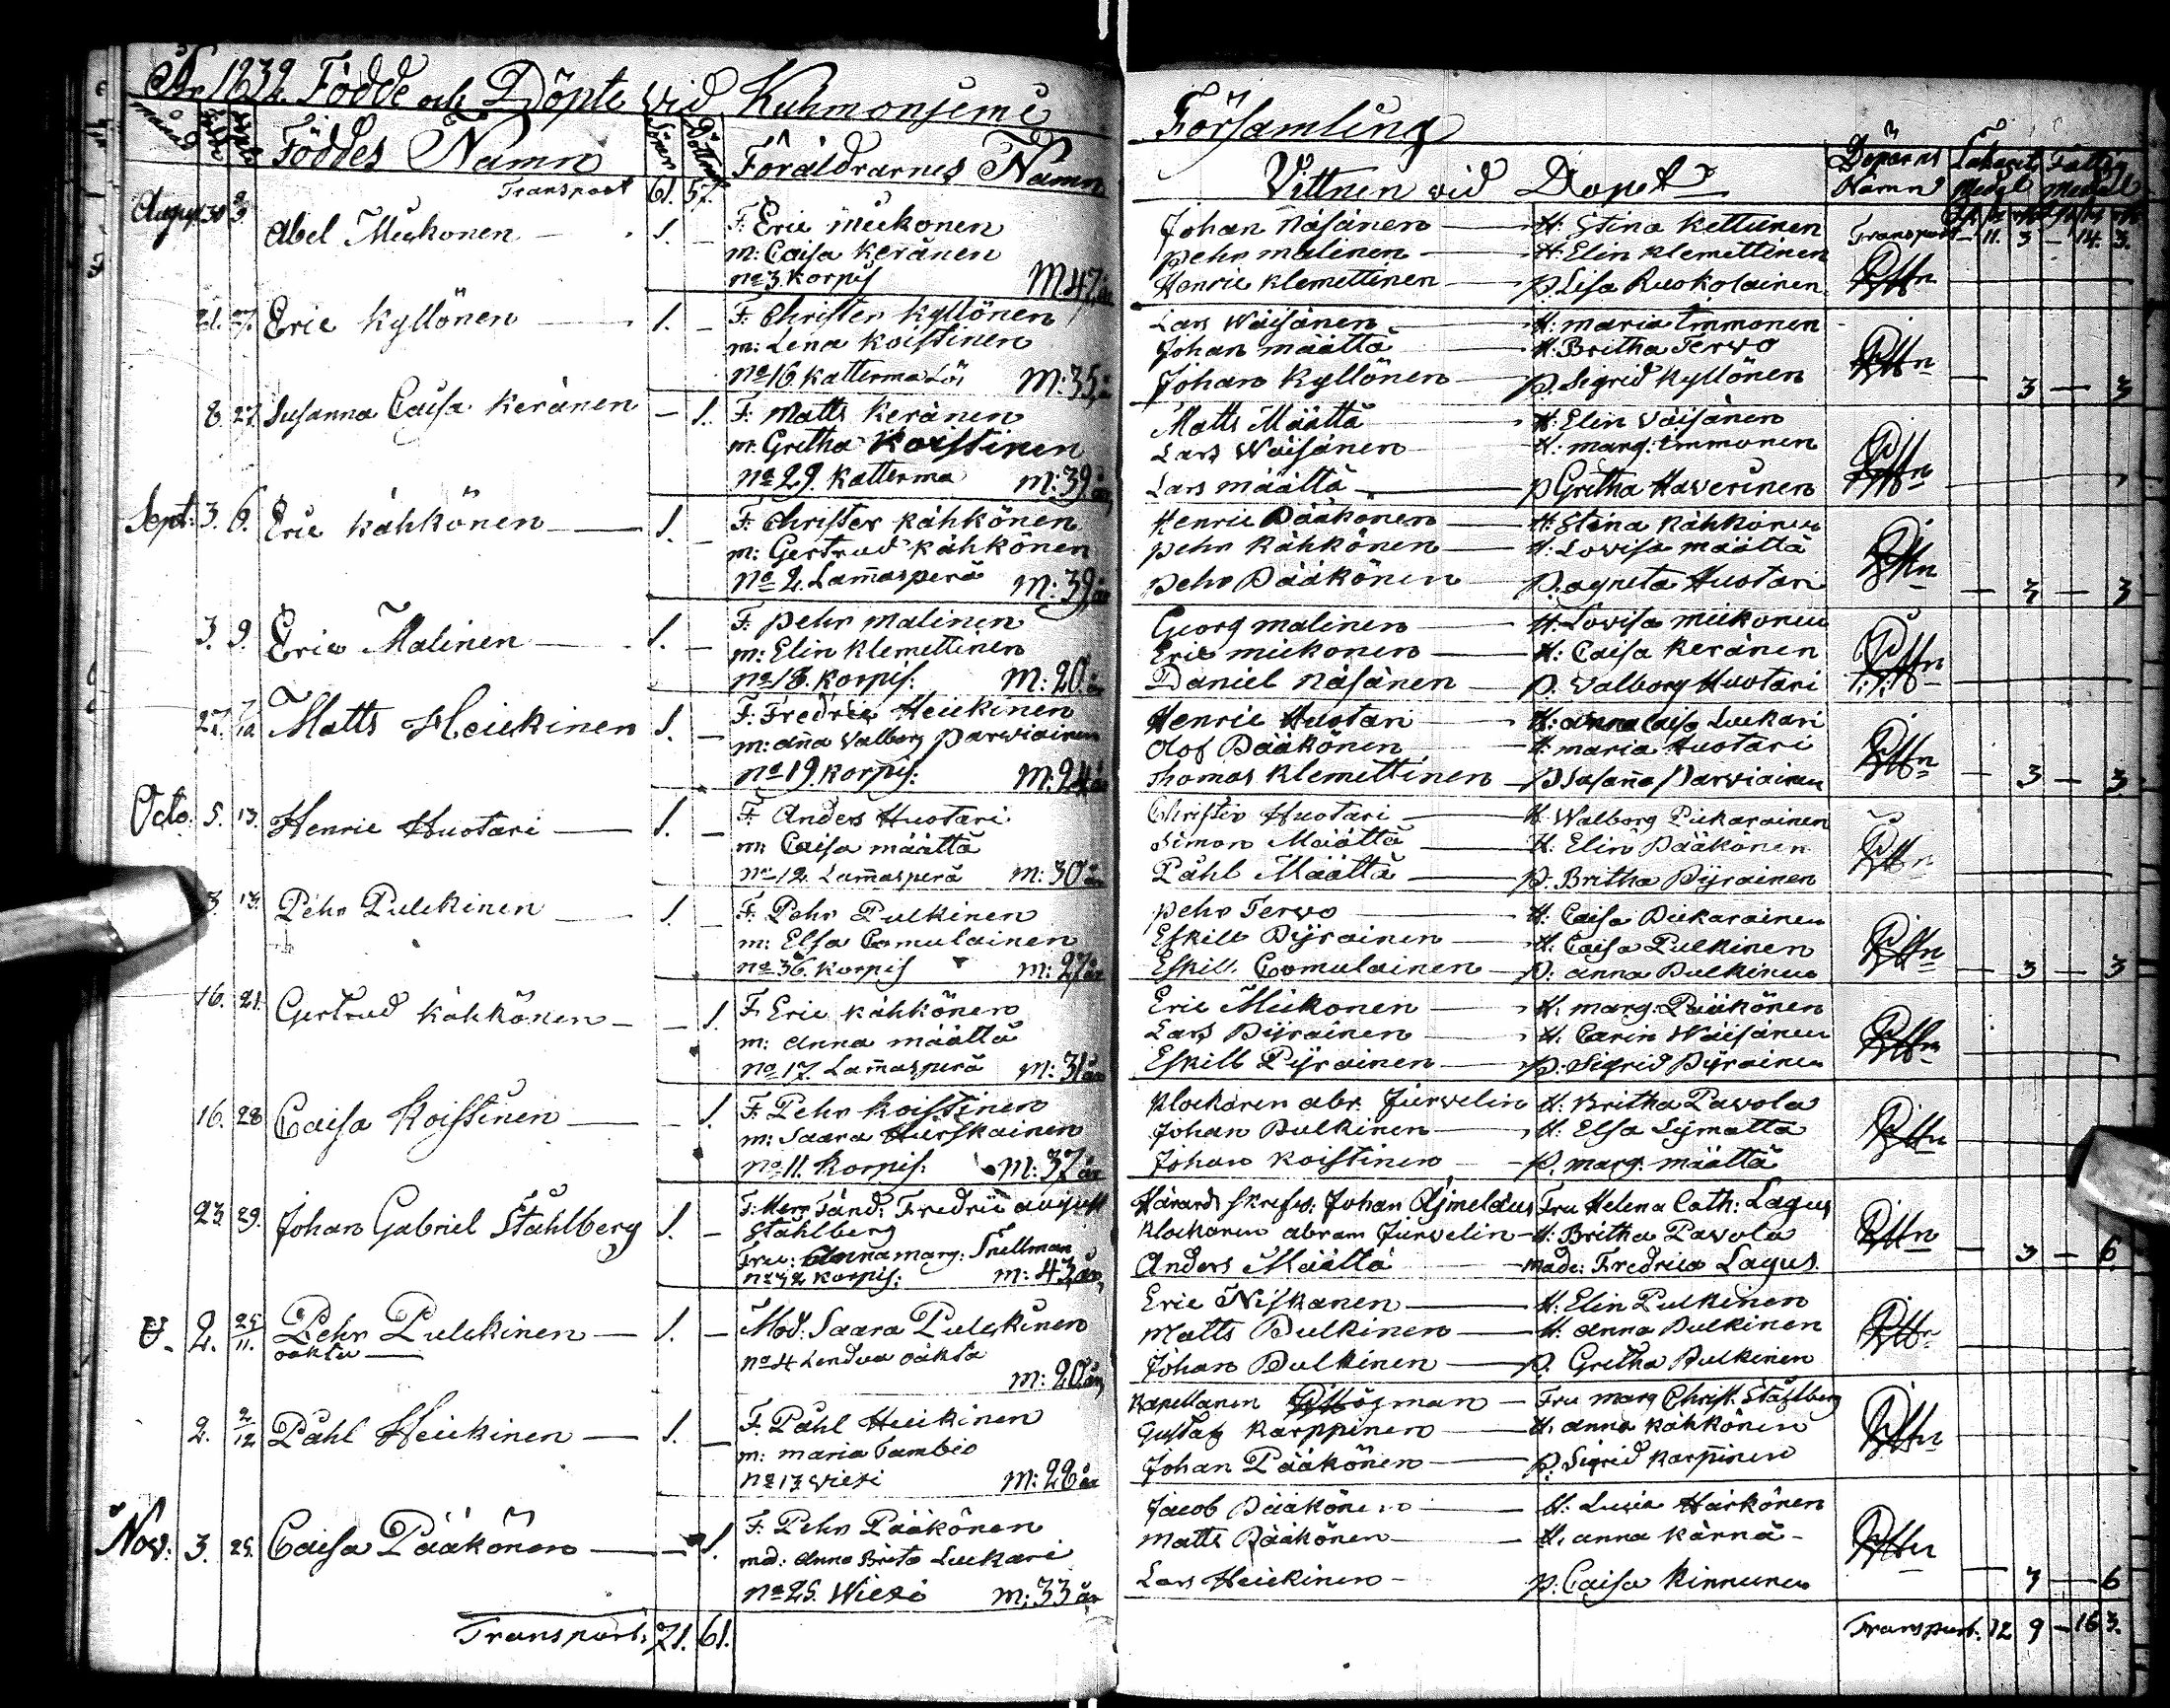 År 1832. Födde och Döpte vid Kuhmoniemi
Församling
månad
Födde
Döpte
Föddes Namn
Söner
Döttrar
Föräldrarnes Namn
Vittnen vid Dopet
Döparens Namn
Transport 61. 57.
Transport 11. 3 14. 3.
August 30 2/9 Abel Miikonen 1. –
F: Eric Miikonen
m: Caisa Keränen
No 3 Korpis M. 47 år
Johan Näsänen H: Stina Kettunen
Pehr Malinen H: Elin Klemettinen
Henric Klemettinen p. Lisa Ruokolainen
21. 27. Eric Kyllönen 1. –
F: Christer Kyllönen
m: Lena Koistinen
No 16. Katterma m: 35 år
Lars Wäisänen H: Maria Immonen
Johan Määttä H: Britha Terwo
Johan Kyllönen p. Sigrid Kyllönen
– 3 – 3
8. 27. Susanna Caisa Keränen – 1.
F: Matts Keränen
m: Gretha Koistinen
No 29. Katterma m: 39 år
Matts Määttä H: Elin Väisänen
Lars Wäisänen H: Marg: Immonen
Lars Määttä p Gretha Haverinen
Sept: 3. 6. Eric Kähkönen 1. –
F: Christer Kähkönen
m: Gertrud Kähkönen
No 2. Lam̄asperä m: 39 år
Henric Pääkönen H: Stina Kähkönen
Pehr Kähkönen H: Lovisa Määttä
Pehr Pääkönen p. Agneta Huotari
– 3 – 3
3. 9. Eric Malinen 1. –
F: Pehr Malinen
m: Elin Klemettinen
No 18. Korpis: m: 20 år
Georg Malinen H: Lovisa Miikonen
Eric Miikonen H: Caisa Keränen
Daniel Näsänen p. Walborg Huotari
27. 7/10 Matts Heickinen 1. –
F: Fredric Heickinen
m: An̄a Valborg Parviainen
No 19. Korpis: m: 24 år
Henric Huotari H: Anna Caisa Luckari
Olof Pääkönen H: Maria Huotari
Thomas Klemettinen p Susan̄a Parviainen
– 3 – 3
Octo: 5. 13. Henric Huotari 1. –
F: Anders Huotari
m: Caisa Määttä
No 12. Lam̄asperä m: 30 år
Christer Huotari H Walborg Piikarainen
Simon Määttä H: Elin Pääkönen
Påhl Määttä p. Britha Pyrainen
3. 13. Pehr Pulckinen 1. –
F: Pehr Pulkinen
m: Elsa Comulainen
No 36. Korpis m: 27 år
Pehr Terwo H: Caisa Piikarainen
Eskill Pyrainen H: Caisa Pulkinen
Eskill Comulainen p: Anna Pulkinen
– 3 – 3
16. 21. Gertrud Kähkönen – 1.
F. Eric Kähkönen
m: Anna Määttä
No 17. Lam̄asperä m: 31 år
Eric Miikonen H. Marg: Pääkönen
Lars Pyrainen H: Carin Wäisänen
Eskill Pyrainen p. Sigrid Pyrainen
16. 28 Caisa Koistinen – 1.
F: Pehr Koistinen
m: Saara Hurskainen
No 11. Korpis: m: 37 år
Klockaren Abr. Jurvelin H. Britha Pavola
Johan Pulkinen H: Elsa Lymatta
Johan Koistinen p. Marg. Määttä
23. 29. Johan Gabriel Ståhlberg 1. –
F: Herr Länd: Fredric August
Ståhlberg
Fru: Anna Marg: Snellman
No 32 Korpis: m: 43 år
Härads skrifv: Johan Ajmelæus Fru Helena Cath: Lagus
Klockaren Abram Jurvelin H: Britha Pavola
Anders Määttä Made: Fredrica Lagus
– 3 – 6.
2. 25/11. Pehr Pulckinen 1. –
oäkta
Mod: Saara Pulckinen
No 4 Lendua oäkta
m: 20 år
Eric Niskanen H: Elin Pulkinen
Matts Pulkinen H. Anna Pulkinen
Johan Pulkinen p. Gretha Pulkinen
2. 2/12 Påhl Heickinen 1. –
F. Påhl Heickinen
m: Maria Tambio
No 13 Wiexi m: 28 år
Kapellanen Fru Marg Christ. Ståhlberg
Gustaf Karppinen H. Anna Kähkönen
Johan Pääkönen p. Sigrid Karpinen
Nov: 3. 25. Caisa Pääkönen – 1.
F. Pehr Pääkönen
md: Anna Brita Luckari
No 25. Wiexi m: 33 år
Jacob Pääkönen H. Lucia Härkönen
Matts Pääkönen H. Anna Kärnä
Lars Heickinen p. Caisa Kinnunen
– 3 – 6
Transport: 71. 61.
Transport: 12 9 – 16 3.